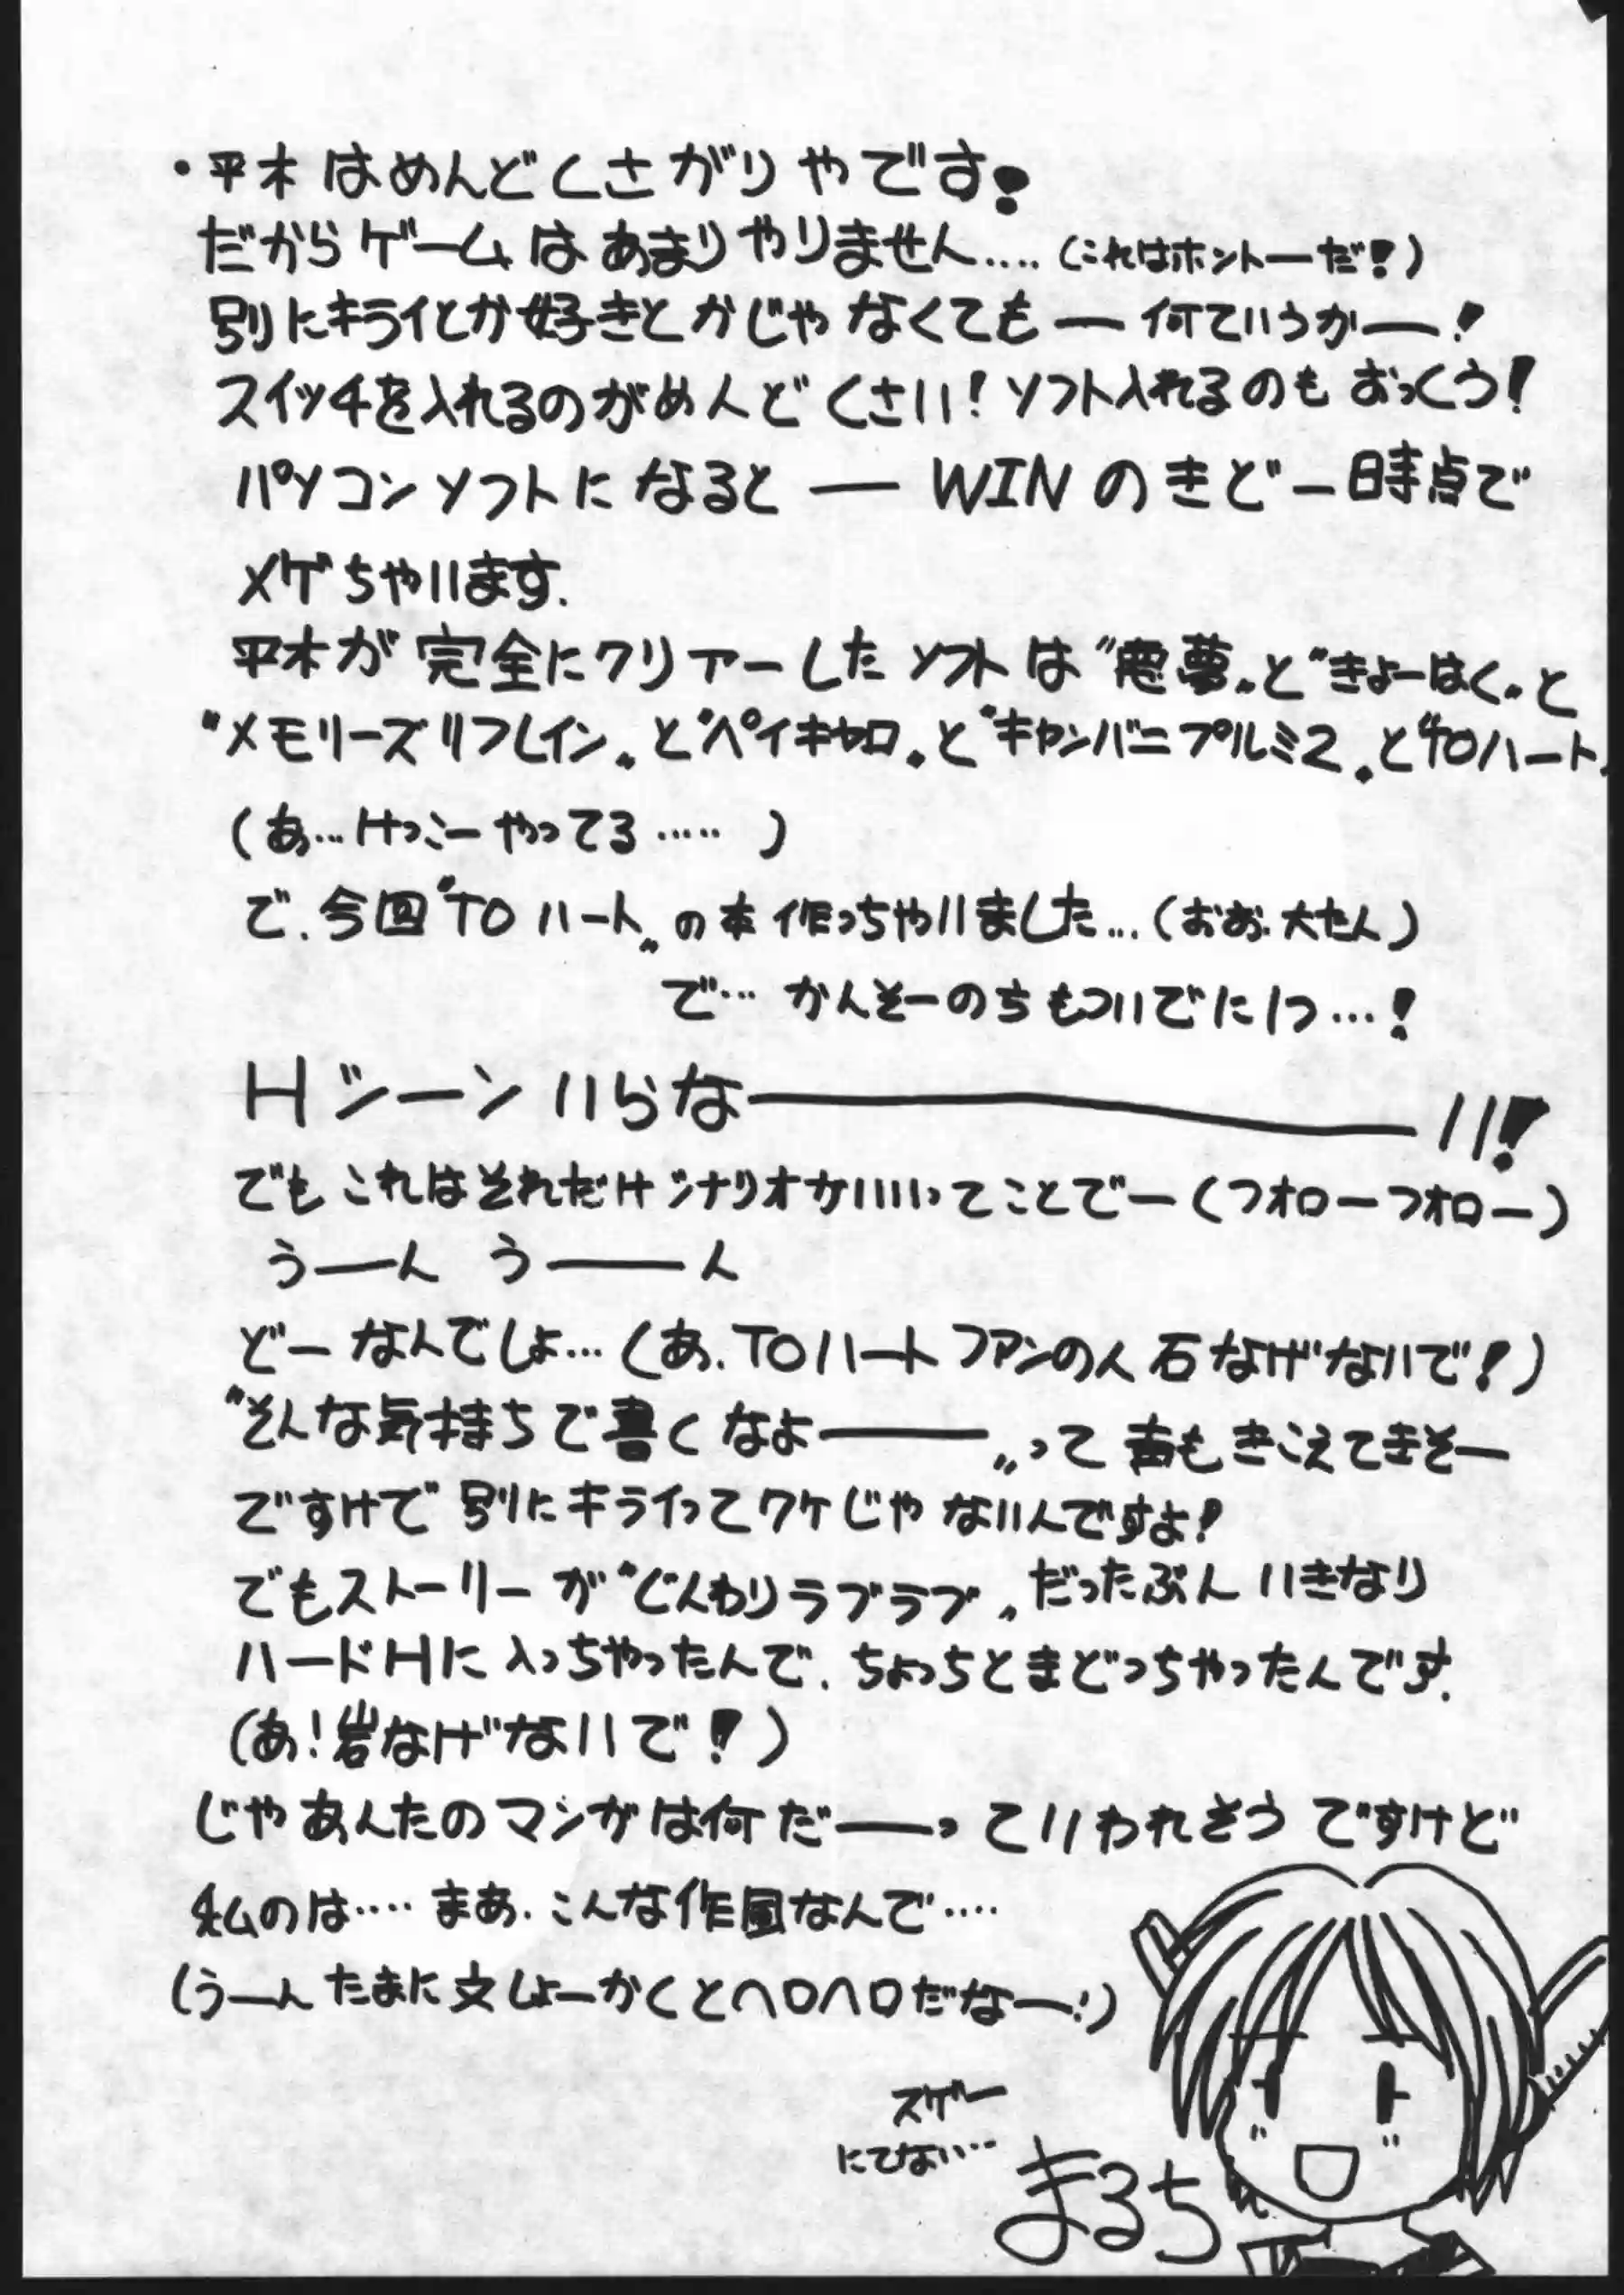 ・平木はめんどくさがりやです!
だからゲームはあまりやりません‥‥(これはホントーだ!)
別にキライとか好きとかじゃなくても―何ていうか―!
スイッチを入れるのがめんどくさい!ソフト入れるのもおっくう!
パソコンソフトになると―WINのきどー時点で
メゲちゃいます.
平木が完全にクリアーしたソフトは"悪夢"と"きょーはく"と
"メモリーズリフレイン"と"ペイキャロ"と"キャンバニプルミ2"と"TOハート"
(あ…けっこーやってる‥‥‥)
で.今回"TOハート"の本作っちゃいました…(おお.大たん)
で…かんそーのちもついでに1つ…!
Hシーンいらな――――い!
でもこれはそれだけシナリオがいいってことでー(フォローフォロー)
うーん うーーん
どーなんでしょ…(あ.TOハートファンの人石なげないで!)
"そんな気持ちで書くなよ――"って声もきこえてきそー
ですけで別にキライってワケじゃないんですよ!
でもストーリーが"じんわりラブラブ"だったぶんいきなり
ハードHに入っちゃったんで.ちょっちとまどっちゃったんです.
(あ!岩なげないで!)
じゃあんたのマンガは何だ―っていわれそうですけど
私のは‥‥まあ.こんな作風なんで‥‥
(うーんたまに文しょーかくとヘロヘロだなー!)
スゲー
にてない…
まるち